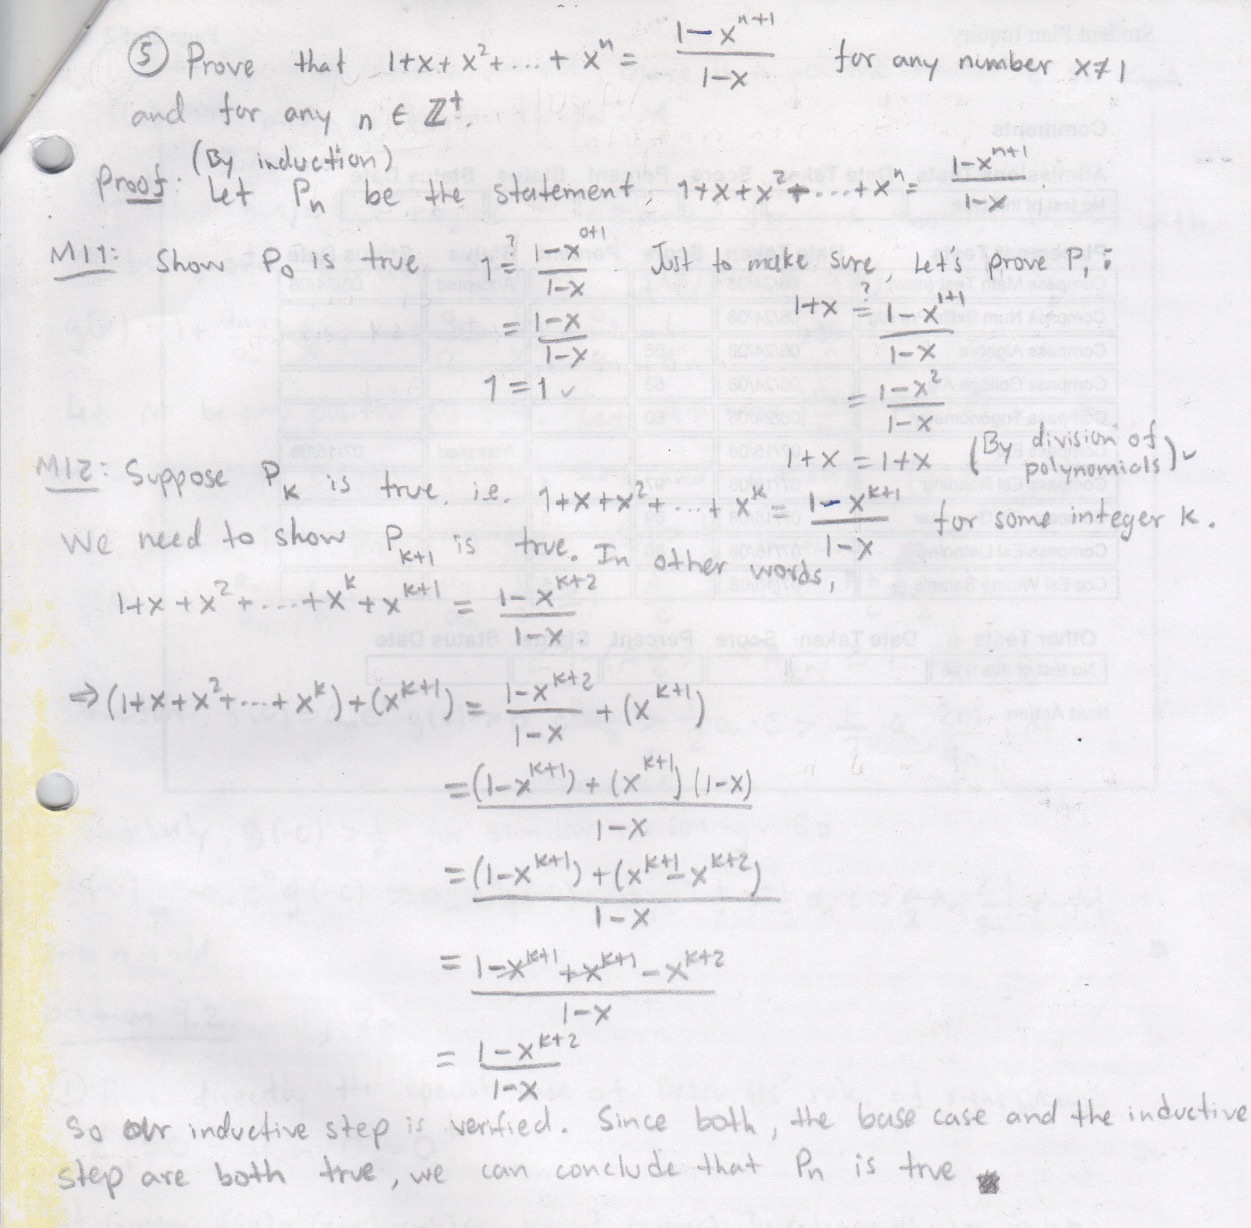 ⑤ Prove that 1+x+x²+...+xⁿ = (1-x^(n+1))/(1-x) for any number x≠1
and for any n ∈ ℤ⁺.
Proof: (By induction)
Let Pₙ be the statement, 1+x+x²+...+xⁿ = (1-x^(n+1))/(1-x)
MI1: Show P₀ is true 1 ≟ (1-x^(0+1))/(1-x)
= (1-x)/(1-x)
1 = 1 ✓
Just to make sure, Let's prove P₁:
1+x ≟ (1-x^(1+1))/(1-x)
= (1-x²)/(1-x)
1+x = 1+x (By division of polynomials) ✓
MI2: Suppose P_k is true, i.e. 1+x+x²+...+x^k = (1-x^(k+1))/(1-x) for some integer k.
We need to show P_(k+1) is true. In other words,
1+x+x²+...+x^k+x^(k+1) = (1-x^(k+2))/(1-x)
⇒ (1+x+x²+...+x^k)+(x^(k+1)) = (1-x^(k+2))/(1-x) + (x^(k+1))
= ((1-x^(k+1))+(x^(k+1))(1-x))/(1-x)
= ((1-x^(k+1))+(x^(k+1)-x^(k+2)))/(1-x)
= (1-x^(k+1)+x^(k+1)-x^(k+2))/(1-x)
= (1-x^(k+2))/(1-x)
So our inductive step is verified. Since both, the base case and the inductive
step are both true, we can conclude that Pₙ is true ■